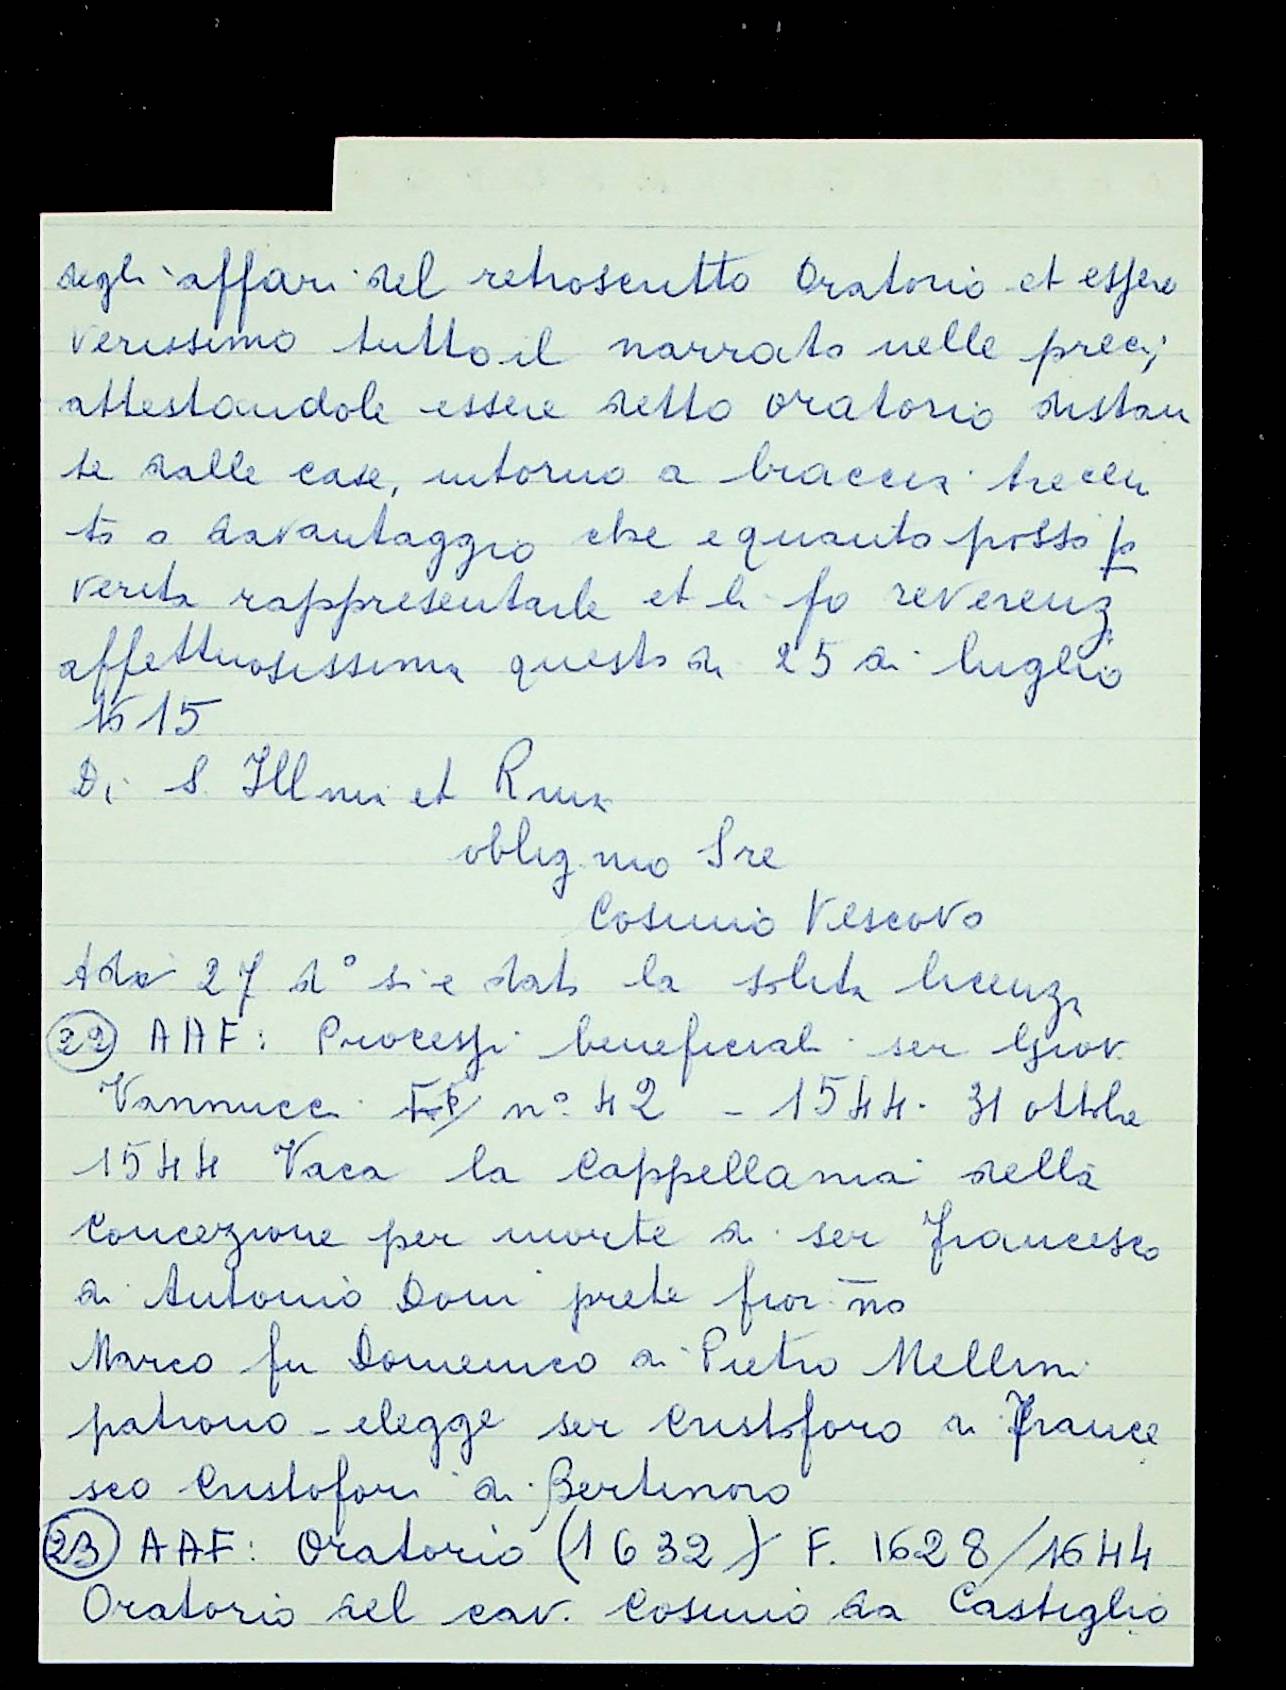 degli affari del retroscritto Oratorio et essere
verissimo tutto il narrato nelle preci,
attestandole essere detto oratorio distan
te dalle case, intorno a braccia trecen
to o davantaggio che e quanto posso p
verita rappresentarle et li fo reverenz
affettuosissima questo di 25 di luglio
1615
Di S. Illma et Rma
oblig mo Sre
Cosimo Vescovo
Adi 27 d° si e dato la solita licenza
22 AAF: Processi beneficiali ser Giov.
Vannucci n° 42 - 1544. 31 ottobre
1544 Vaca la Cappellania della
Concezione per morte di ser Francesco
di Antonio Doni prete fior no
Marco fu Domenico di Pietro Mellini
patrono - elegge ser Cristoforo di France
sco Cristofori di Bertinoro
23 AAF: Oratorio (1632) F. 1628/1644
Oratorio del cav. Cosimo da Castiglio